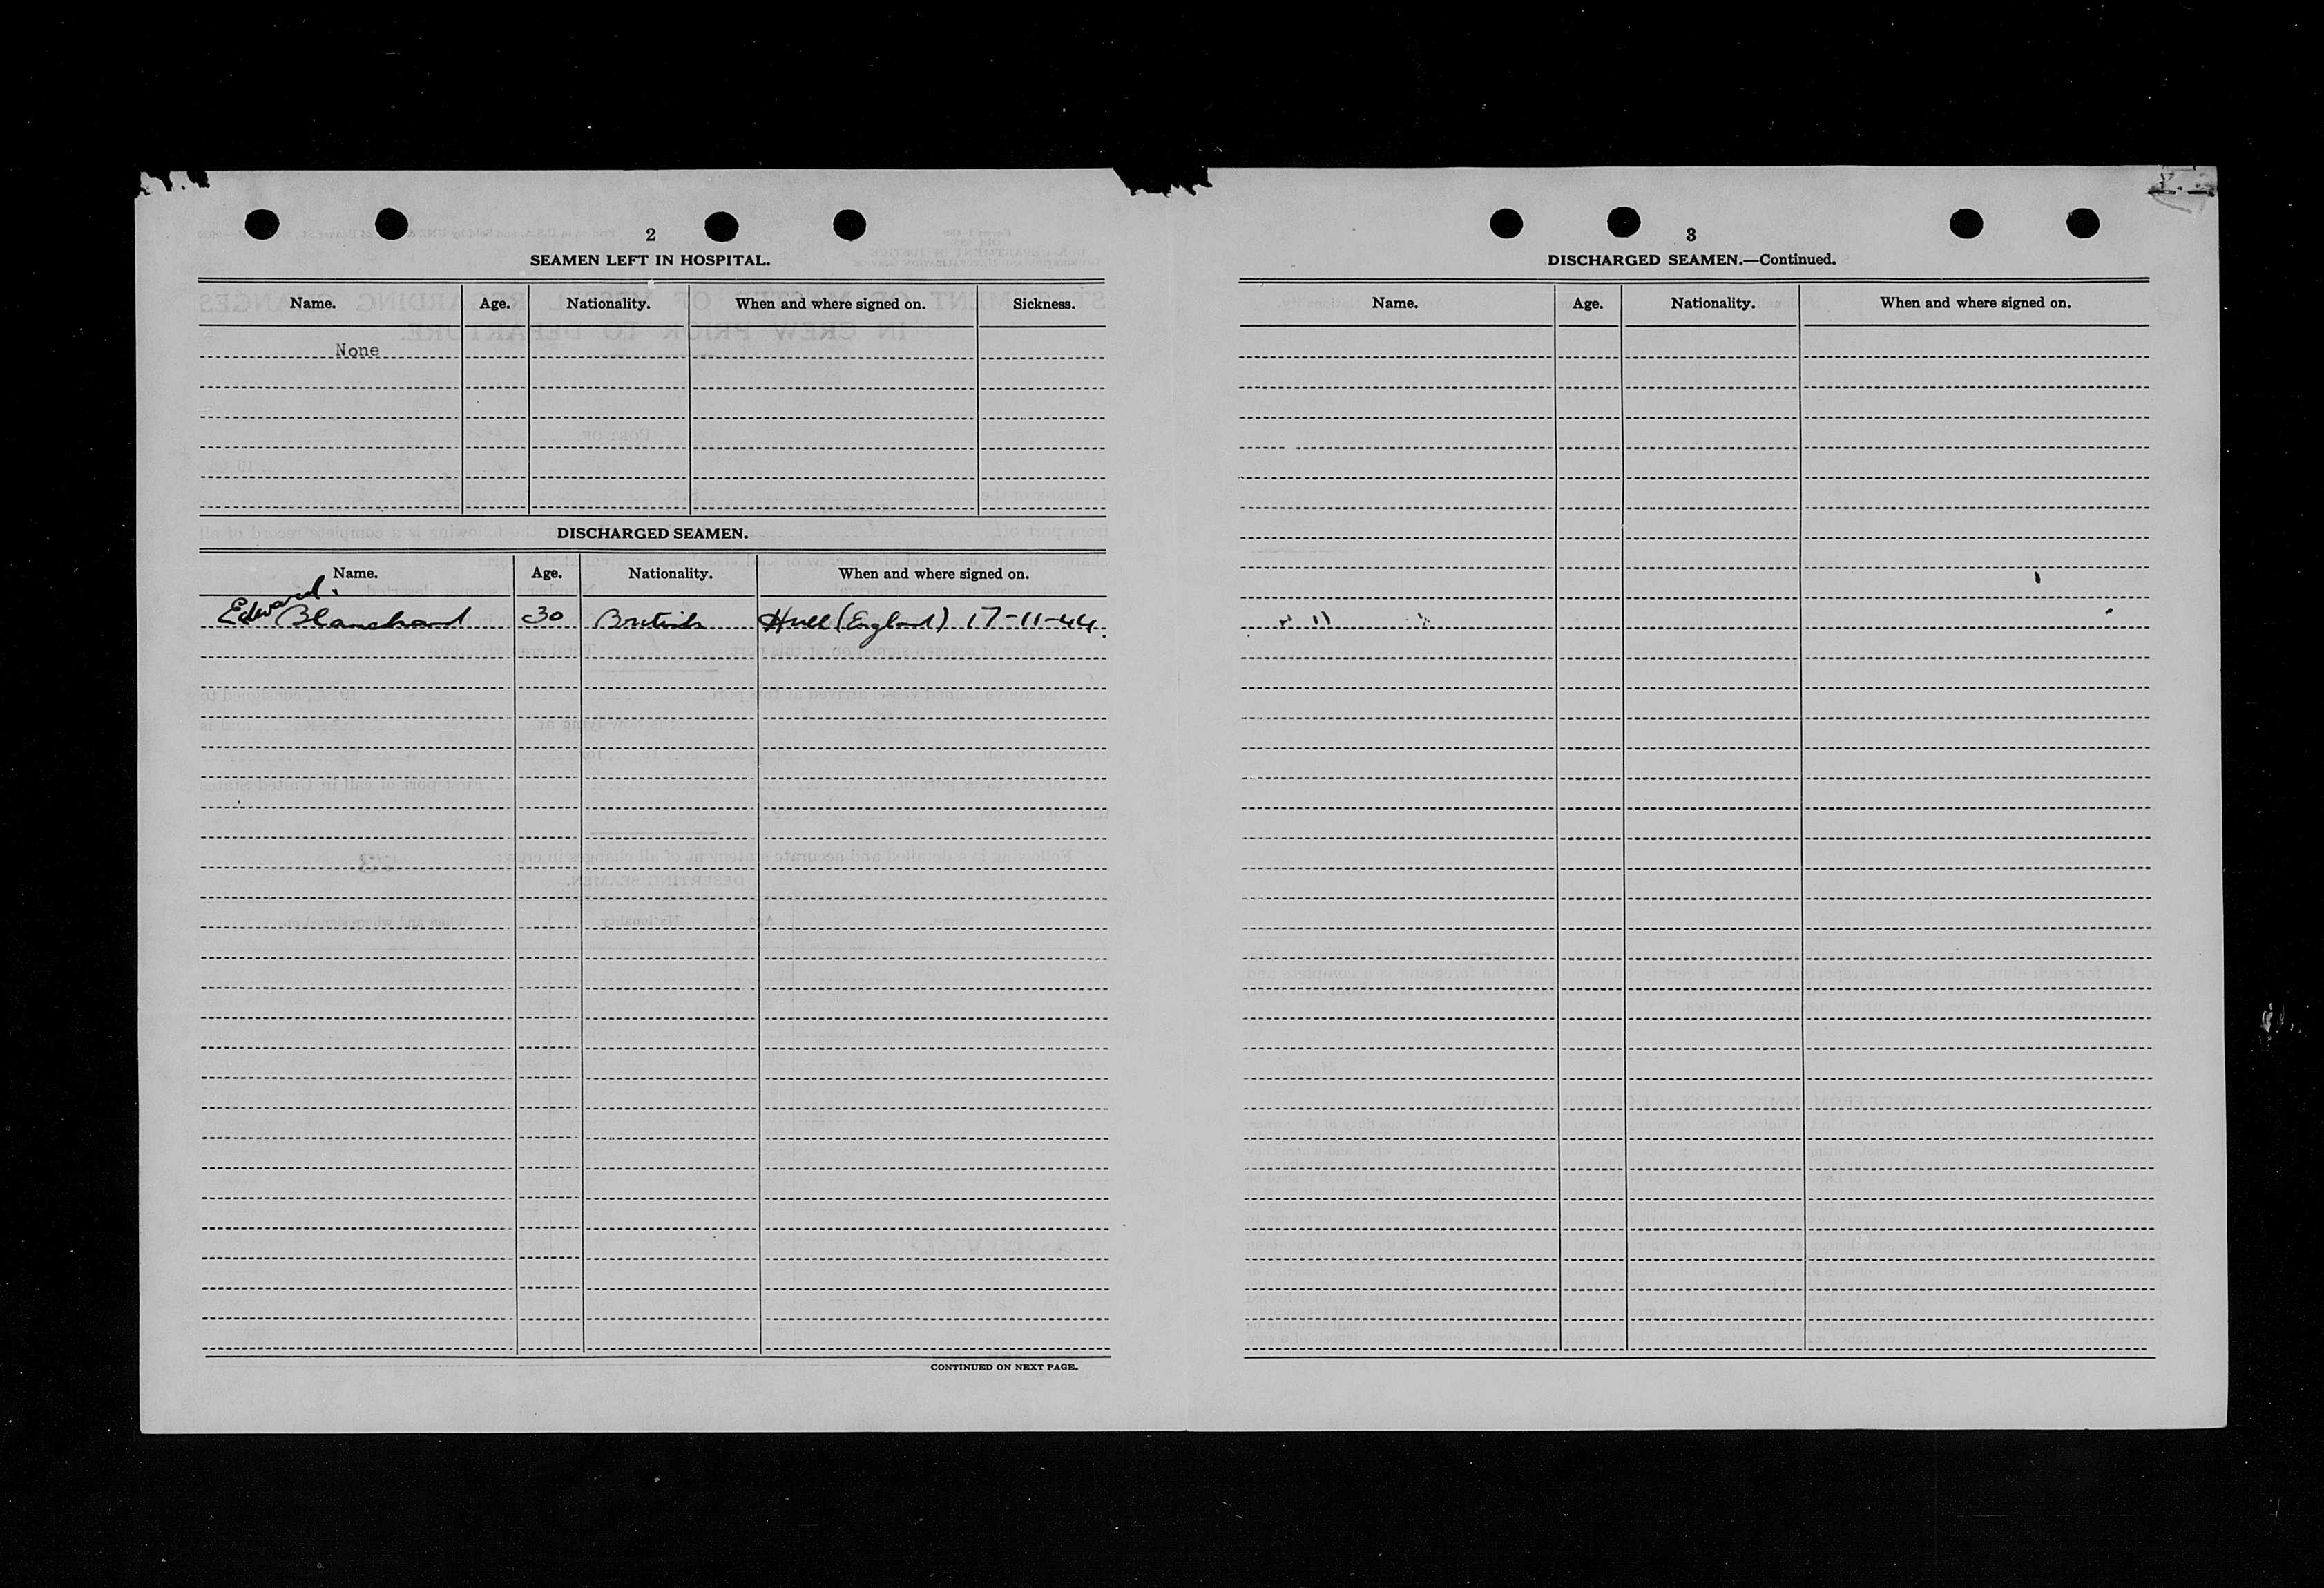 2
SEAMEN LEFT IN HOSPITAL.
Name. Age. Nationality. When and where signed on. Sickness.
None
DISCHARGED SEAMEN.
Name. Age. Nationality. When and where signed on.
Edward Blanchard 30 British Hull (England) 17-11-44.
CONTINUED ON NEXT PAGE.
3
DISCHARGED SEAMEN.—Continued.
Name. Age. Nationality. When and where signed on.